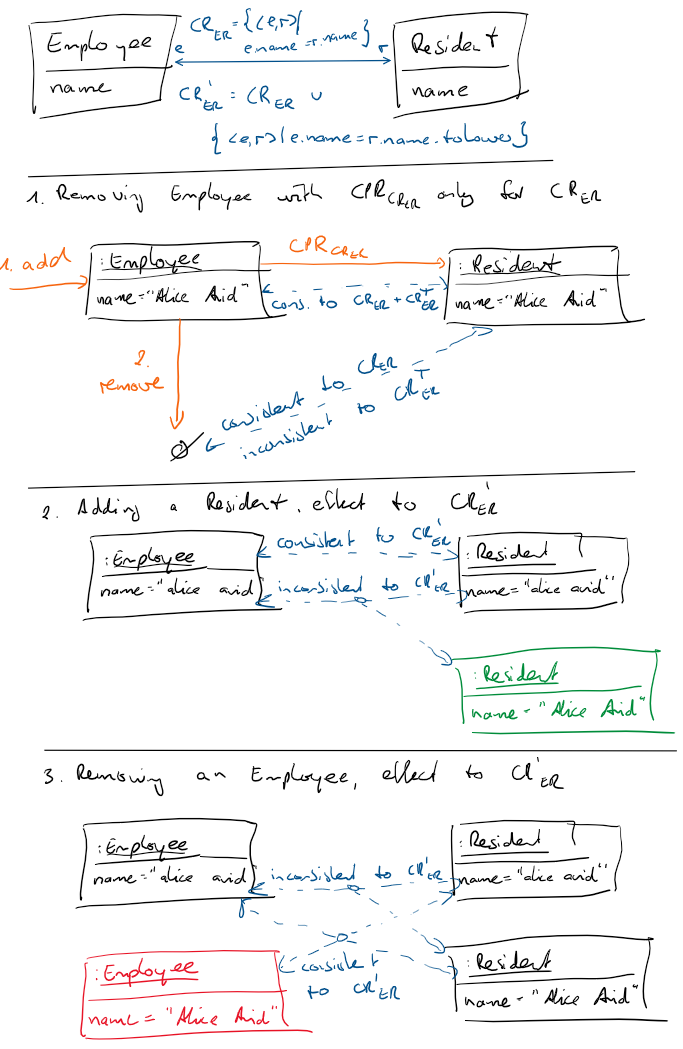 Employee
name
CR_ER = {<e,r>|
e.name = r.name}
e
r
Resident
name
CR'_ER = CR_ER ∪
{<e,r>|e.name=r.name.toLower}
1. Removing Employee with CPR_CR_ER only for CR_ER
1. add
:Employee
name="Alice Arid"
CPR_CR_ER
cons. to CR_ER + CR^T_ER
:Resident
name="Alice Arid"
2.
remove
∅
consistent to CR_ER
inconsistent to CR^T_ER
2. Adding a Resident, effect to CR'_ER
:Employee
name="alice arid
consistent to CR'_ER
inconsistent to CR'_ER
:Resident
name="alice arid"
:Resident
name="Alice Arid"
3. Removing an Employee, effect to CR'_ER
:Employee
name="alice arid
inconsistent to CR'_ER
:Resident
name="alice arid"
:Employee
name = "Alice Arid"
consistent
to CR'_ER
:Resident
name="Alice Arid"